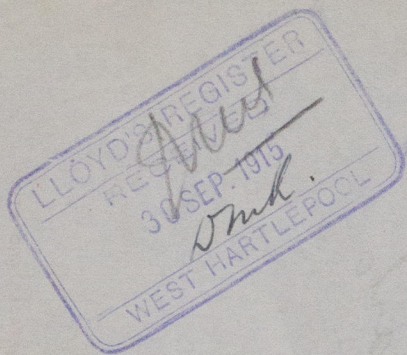 LLOYD'S REGISTER
RECEIVED
30 SEP. 1915
WEST HARTLEPOOL